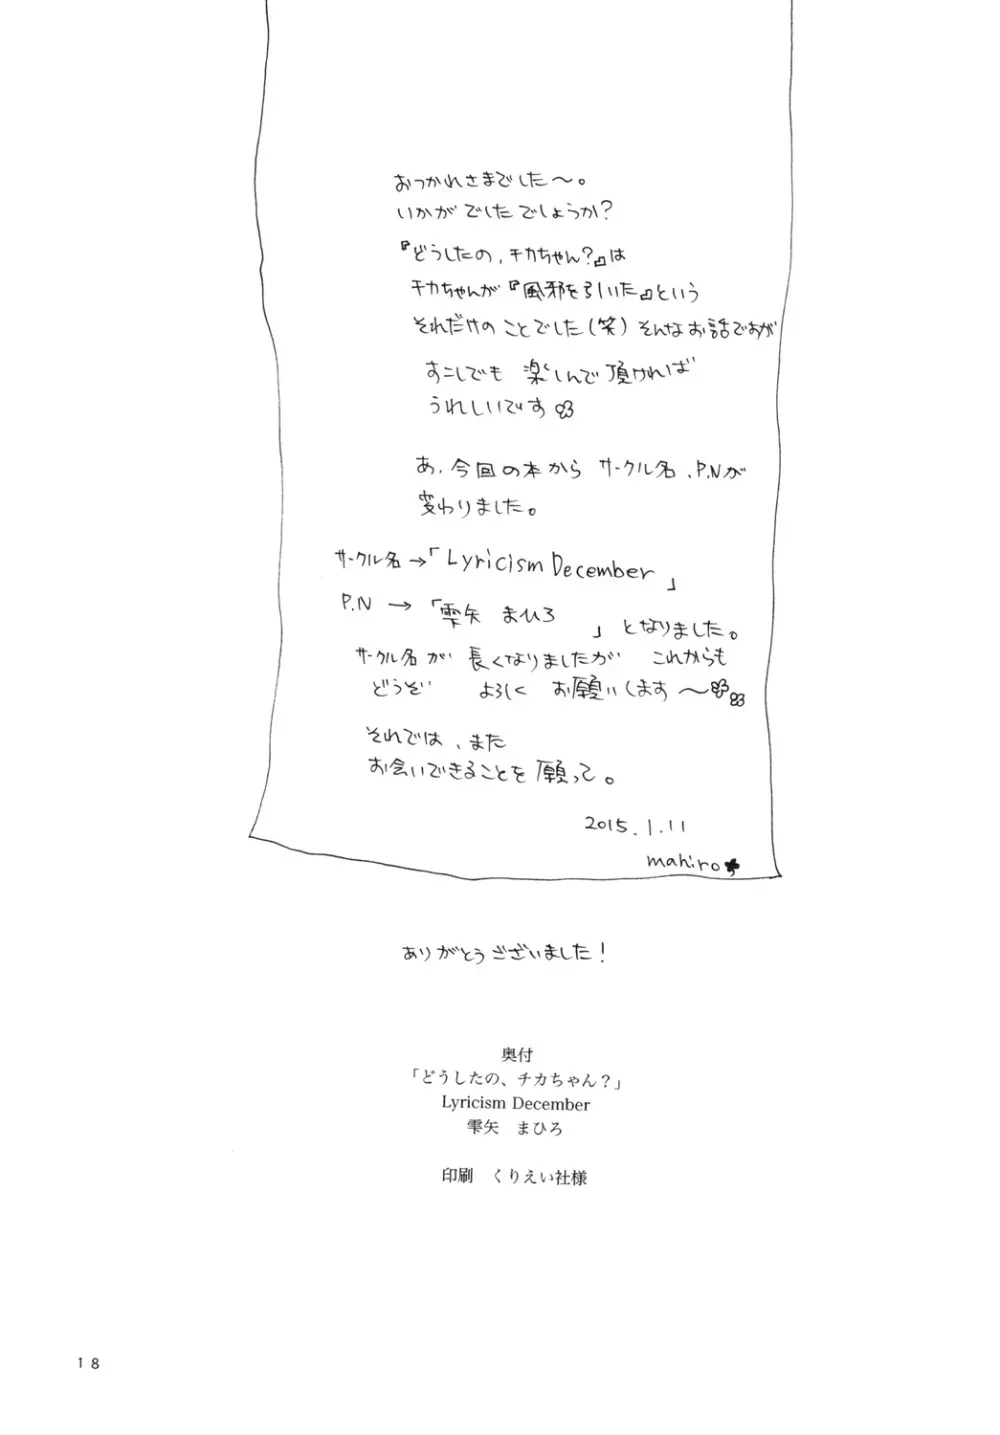 おつかれさまでした〜。
いかがでしたでしょうか?
『どうしたの、チカちゃん?』は
チカちゃんが『風邪を引いた』という
それだけのことでした(笑)そんなお話ですが
すこしでも 楽しんで頂ければ
うれしいです
あ、今回の本から サークル名、P.Nが
変わりました。
サークル名→「Lyricism December」
P.N → 「雫矢 まひろ 」となりました。
サークル名が 長くなりましたが これからも
どうぞ よろしく お願いします〜
それでは、また
お会いできることを願って。
2015.1.11
mahiro
ありがとうございました!
奥付
「どうしたの、チカちゃん?」
Lyricism December
雫矢 まひろ
印刷 くりえい社様
18